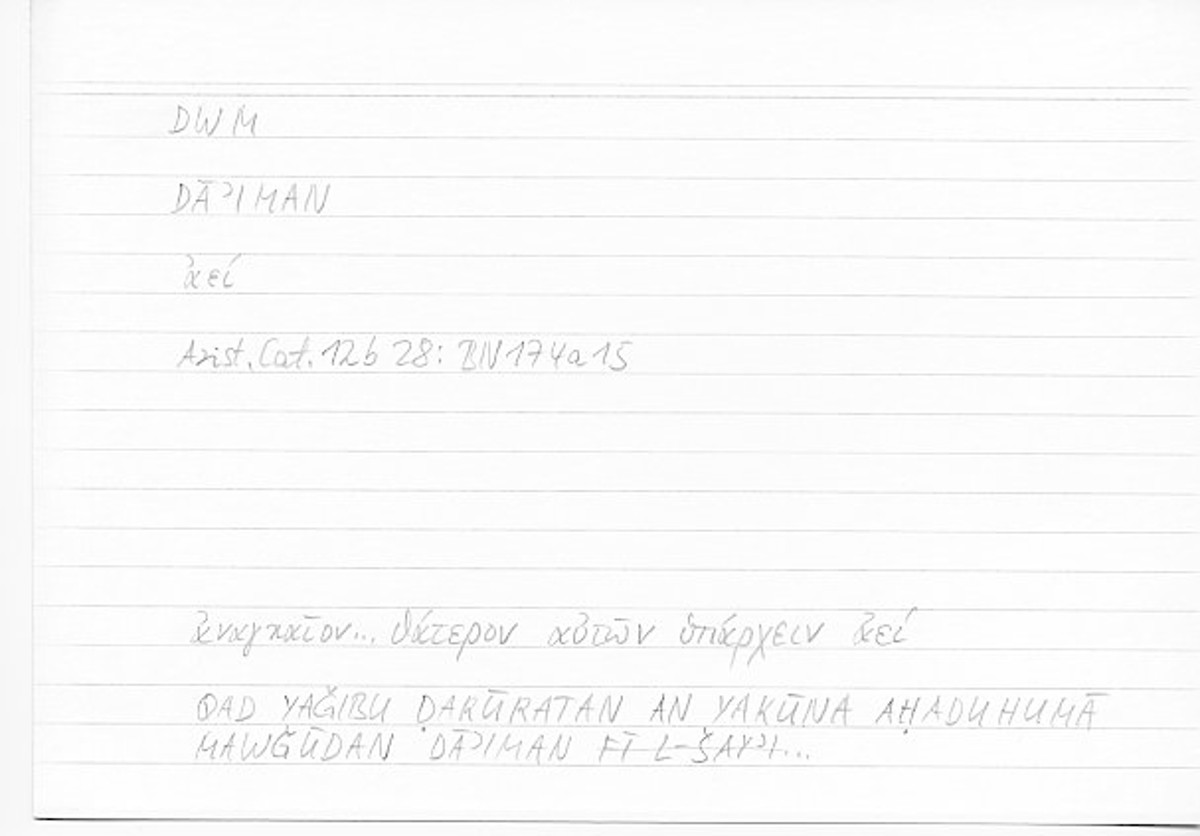 DWM
DĀʾIMAN
ἀεί
Arist. Cat. 12b 28: BN174a15
ἀναγκαῖον... θάτερον αὐτῶν ὑπάρχειν ἀεί
QAD YAǦIBU ḌARŪRATAN AN YAKŪNA AḤADUHUMĀ
MAWǦŪDAN DĀʾIMAN FĪ L-ŠAYʾI...